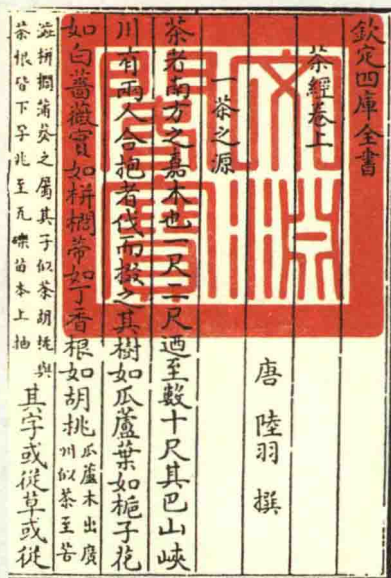 欽定四庫全書
茶經卷上
唐 陸羽 撰
一茶之源
茶者南方之嘉木也一尺二尺迺至數十尺其巴山峽
川有兩人合抱者伐而掇之其樹如瓜蘆葉如梔子花
如白薔薇實如栟櫚蒂如丁香根如胡桃
瓜蘆木出廣
州似茶至苦
澁栟櫚蒲葵之屬其子似茶胡桃與
茶根皆下孕兆至瓦礫苗木上抽
其字或從草或從
文淵閣寶